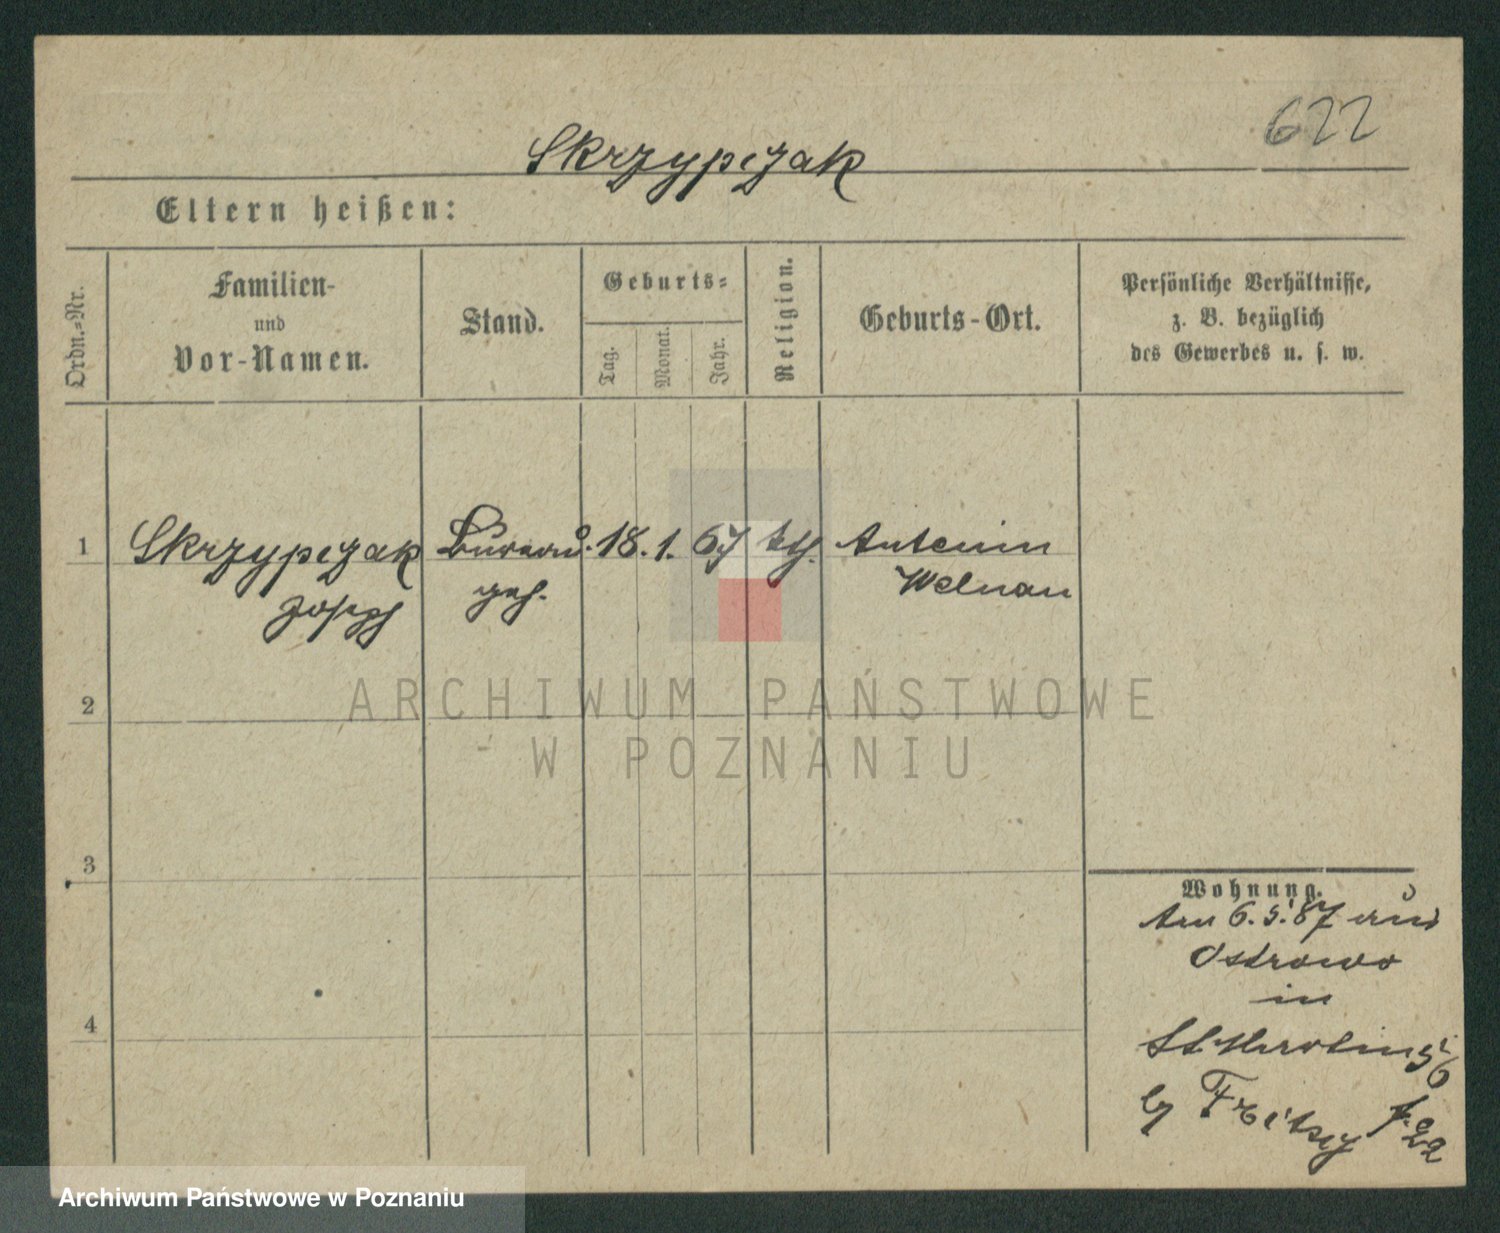 622
Skrzypczak
Eltern heißen:
Ordn.-Nr.
Familien-
und
Vor-Namen.
Stand.
Geburts-
Tag.
Monat.
Jahr.
Religion.
Geburts-Ort.
Persönliche Verhältnisse,
z. B. bezüglich
des Gewerbes u. s. w.
1 Skrzypczak Bureau 18. 1. 67 kth.
Joseph geh. Welnau
2
3
4
Wohnung.
Am 6.5.87 aus
Ostrowo
in
St. Martin
ARCHIWUM PAŃSTWOWE
W POZNANIU
Archiwum Państwowe w Poznaniu